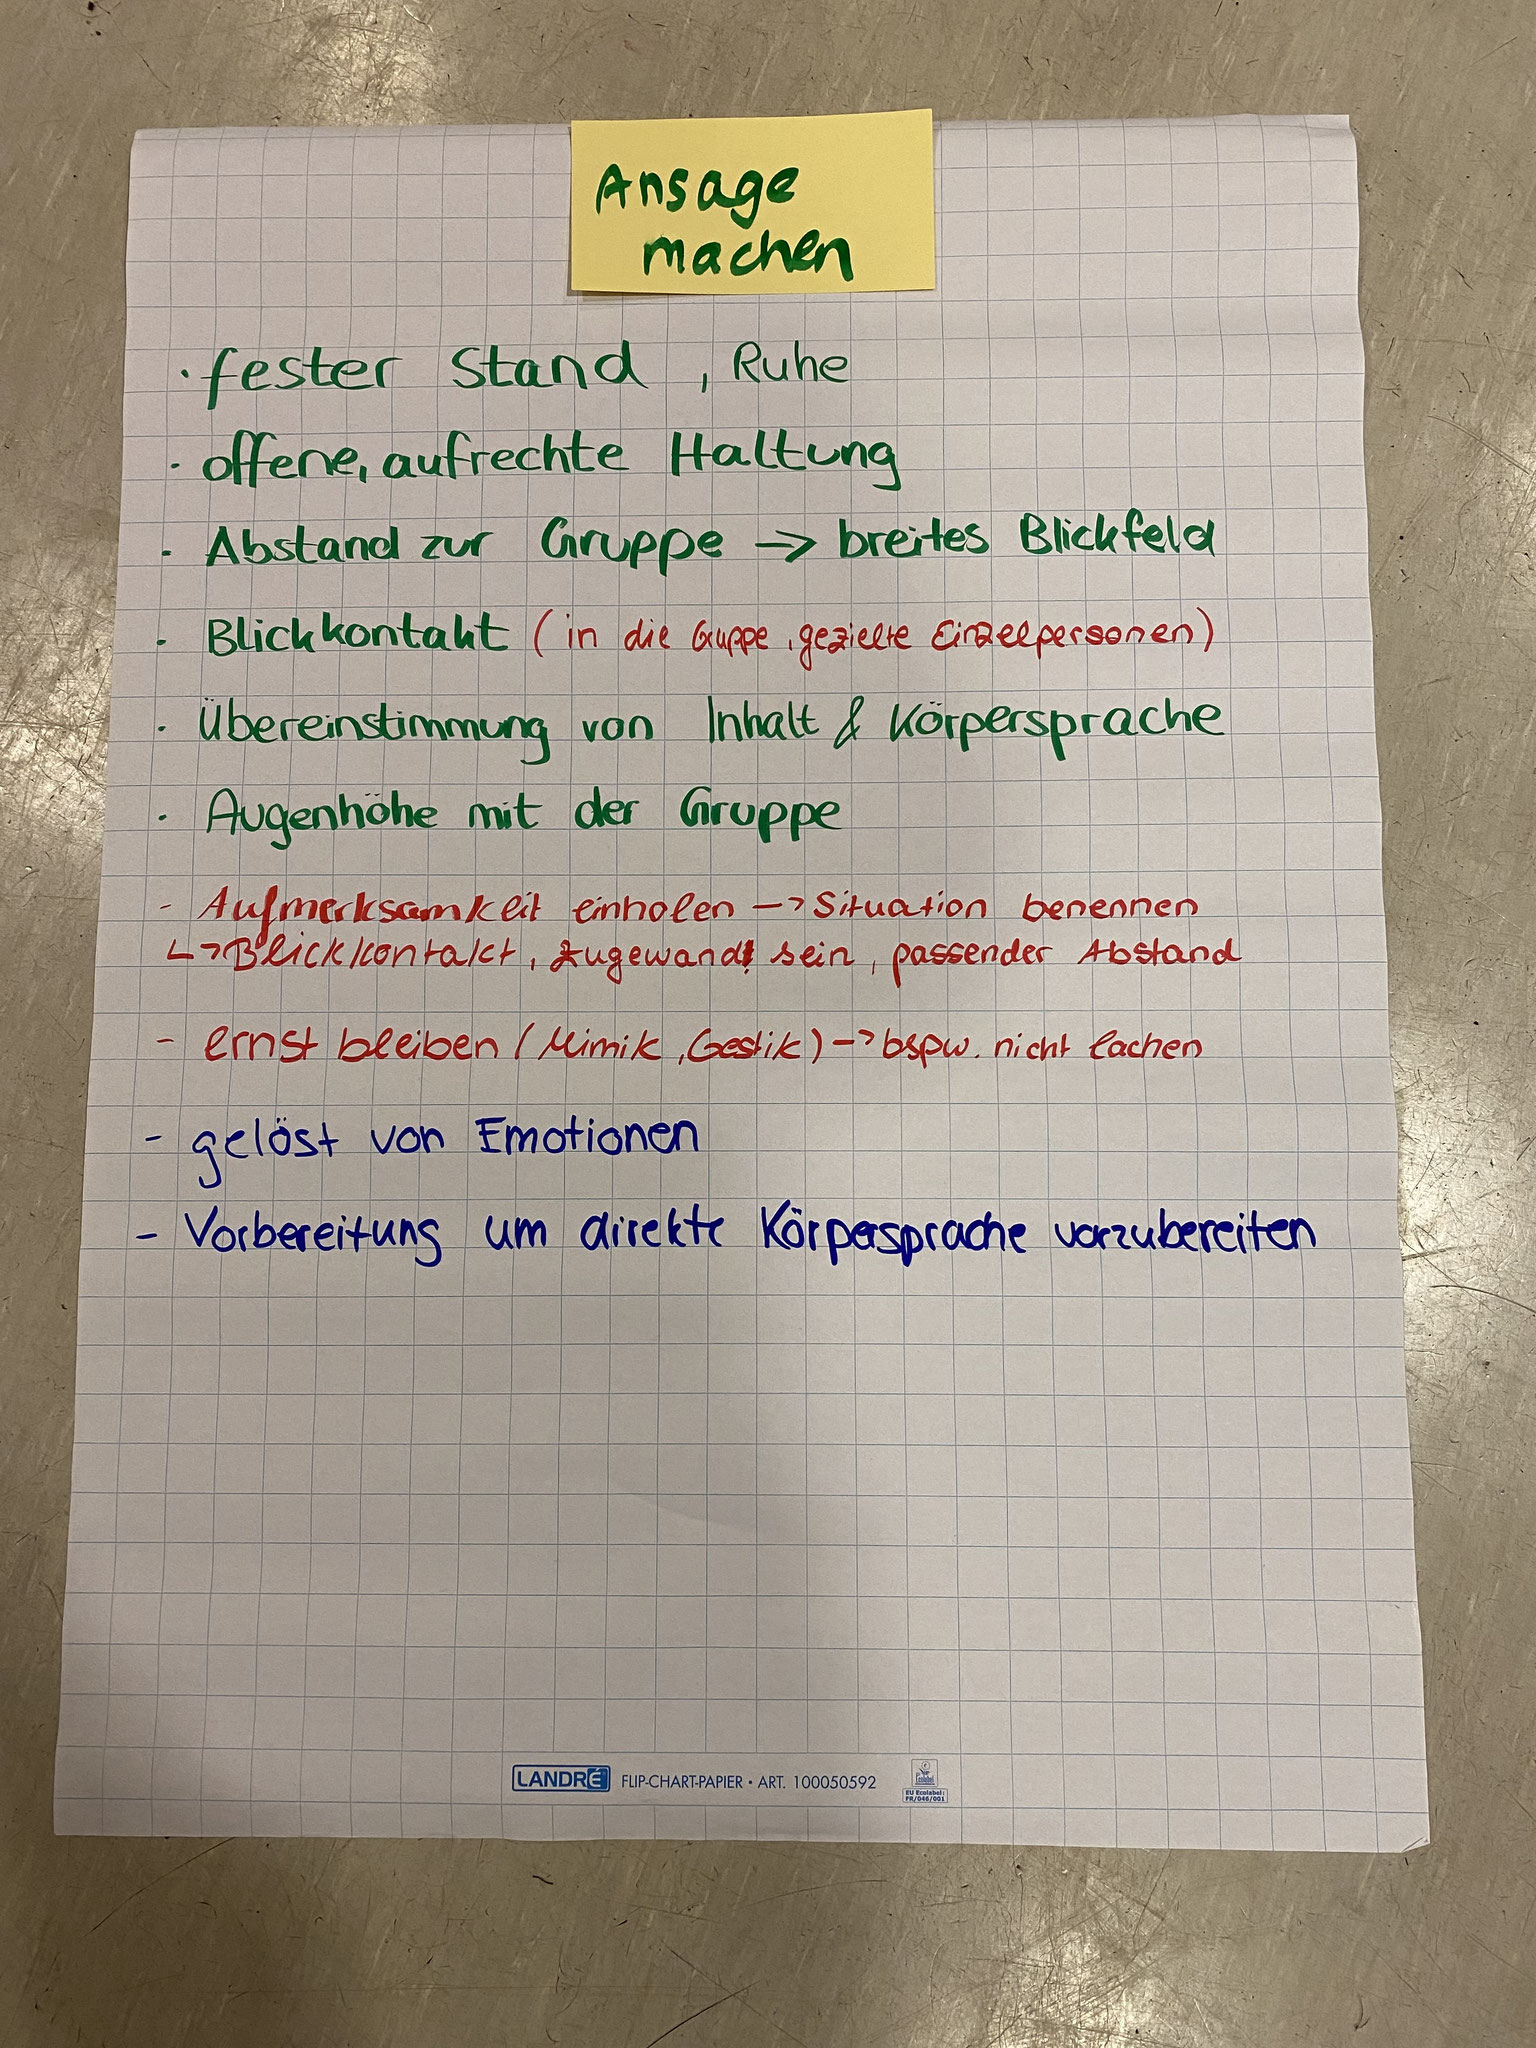 Ansage
machen
· fester Stand , Ruhe
· offene, aufrechte Haltung
· Abstand zur Gruppe → breites Blickfeld
· Blickkontakt ( in die Gruppe , gezielte Einzelpersonen )
· Übereinstimmung von Inhalt & Körpersprache
· Augenhöhe mit der Gruppe
- Aufmerksamkeit einholen → Situation benennen
↳ Blickkontakt, zugewandt sein, passender Abstand
- ernst bleiben ( Mimik , Gestik ) → bspw. nicht lachen
- gelöst von Emotionen
- Vorbereitung um direkte Körpersprache vorzubereiten
LANDRÉ FLIP-CHART-PAPIER • ART. 100050592
Ecolabel
EU Ecolabel :
FR/046/001